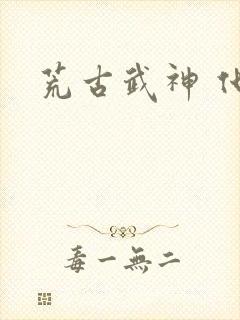 荒古武神
毒一無二